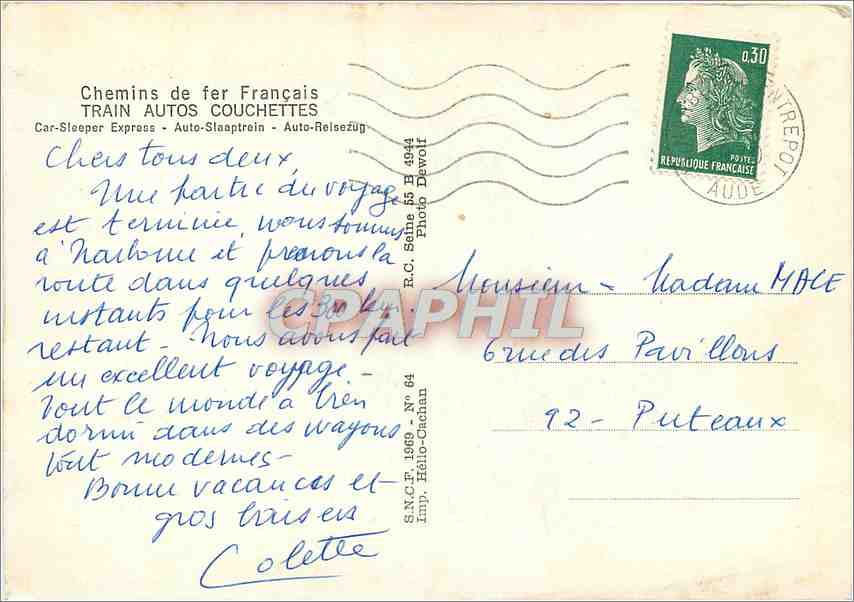 Chemins de fer Français
TRAIN AUTOS COUCHETTES
Car-Sleeper Express - Auto-Slaaptrein - Auto-Reisezug
Chers tous deux,
Une partie du voyage
est terminée, nous sommes
à Narbonne et prenons la
route dans quelques
instants pour les 300 km
restant - Nous avons fait
un excellent voyage -
Tout le monde a bien
dormi dans des wagons
tout modernes -
Bonne vacances et
gros baisers
Colette
S.N.C.F. 1969 - N° 64
Imp. Hélio-Cachan
R.C. Seine 55 B 4944
Photo Dewolf
0,30
POSTES
REPUBLIQUE FRANÇAISE
ENTREPOT
AUDE
Monsieur - Madame MACE
6 rue des Pavillons
92 - Puteaux
CPAPHIL